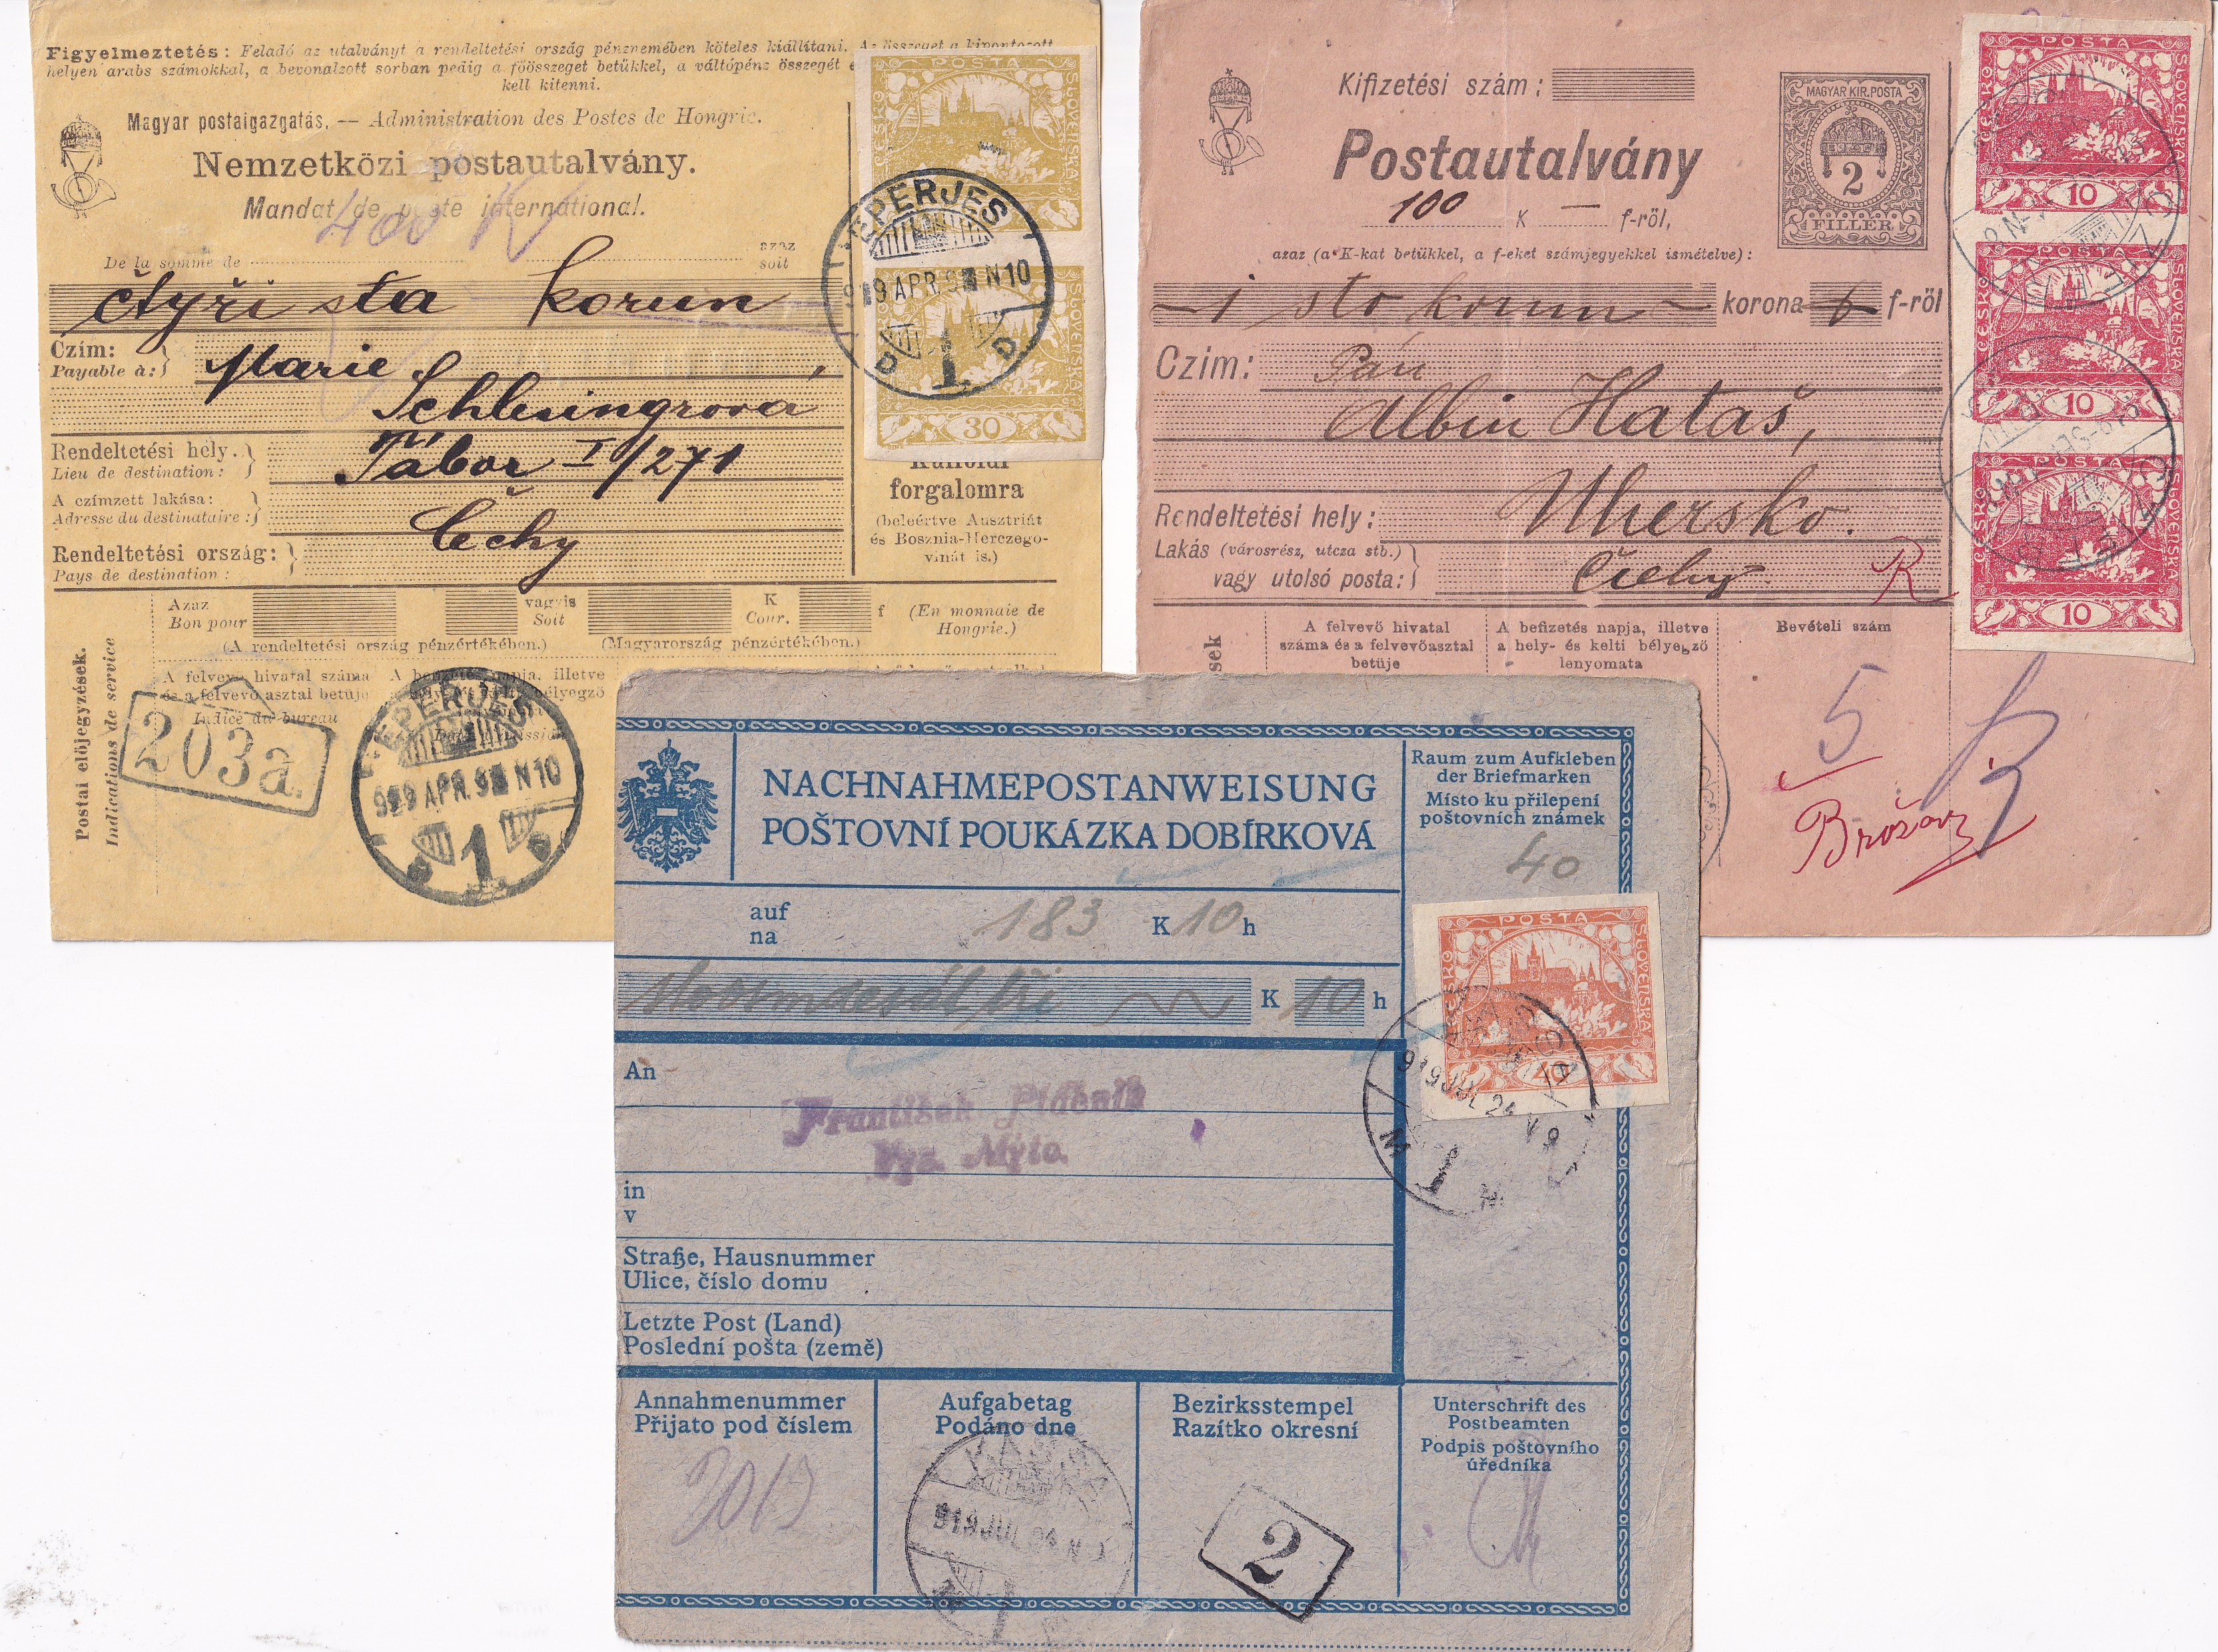 Figyelmeztetés: Feladó az utalványt a rendeltetési ország pénznemében köteles kiállítani. Az összeget a kipontozott
helyen arabs számokkal, a bevonalzott sorban pedig a főösszeget betükkel, a váltópénz összegét
kell kitenni.
Magyar postaigazgatás. — Administration des Postes de Hongrie.
Nemzetközi postautalvány.
Mandat de poste international.
400 K
De la somme de
azaz
soit
čtyři sta korun
Czím:
Payable à:
Marie
Schlesingrová
Rendeltetési hely.
Lieu de destination:
Tábor I/271
A czímzett lakása:
Adresse du destinataire:
Čechy
Rendeltetési ország:
Pays de destination:
POSTA
ČESKO
SLOVENSKÁ
EPERJES
919 APR. 9 N10
1
30
Külföldi
forgalomra
(beleértve Ausztriát
és Bosznia-Herczego-
vinát is.)
Azaz
Bon pour
vagyis
Soit
K
Cour.
f
(En monnaie de
Hongrie.)
(A rendeltetési ország pénzértékében.)
(Magyarország pénzértékében.)
Postai előjegyzések.
Indications de service
A felvevő hivatal száma
és a felvevő asztal betűje
Indice du bureau
203a.
EPERJES
919 APR. 9 N10
1
Kifizetési szám:
Postautalvány
100 K — f-ről,
azaz (a K-kat betükkel, a f-eket számjegyekkel ismételve):
sto korun korona f-ről
MAGYAR KIR. POSTA
2
FILLÉR
Czim:
Pán
Albin Hataš,
Rendeltetési hely:
Uhersko.
Lakás (városrész, utcza stb.)
vagy utolsó posta:
Čechy
R
POSTA
ČESKO
SLOVENSKÁ
10
10
POSTA
ČESKO
SLOVENSKÁ
10
A felvevő hivatal
száma és a felvevőasztal
betüje
A befizetés napja, illetve
a hely- és kelti bélyegző
lenyomata
Bevételi szám
5
NACHNAHMEPOSTANWEISUNG
POŠTOVNÍ POUKÁZKA DOBÍRKOVÁ
Raum zum Aufkleben
der Briefmarken
Místo ku přilepení
poštovních známek
40
auf
na
183 K 10 h
K 10 h
POSTA
ČESKO
SLOVENSKÁ
919 JUL 24 V 9
1
An
František
Vys. Mýto
in
v
Straße, Hausnummer
Ulice, číslo domu
Letzte Post (Land)
Poslední pošta (země)
Annahmenummer
Přijato pod číslem
Aufgabetag
Podáno dne
Bezirksstempel
Razítko okresní
Unterschrift des
Postbeamten
Podpis poštovního
úředníka
919 JUL 24
2